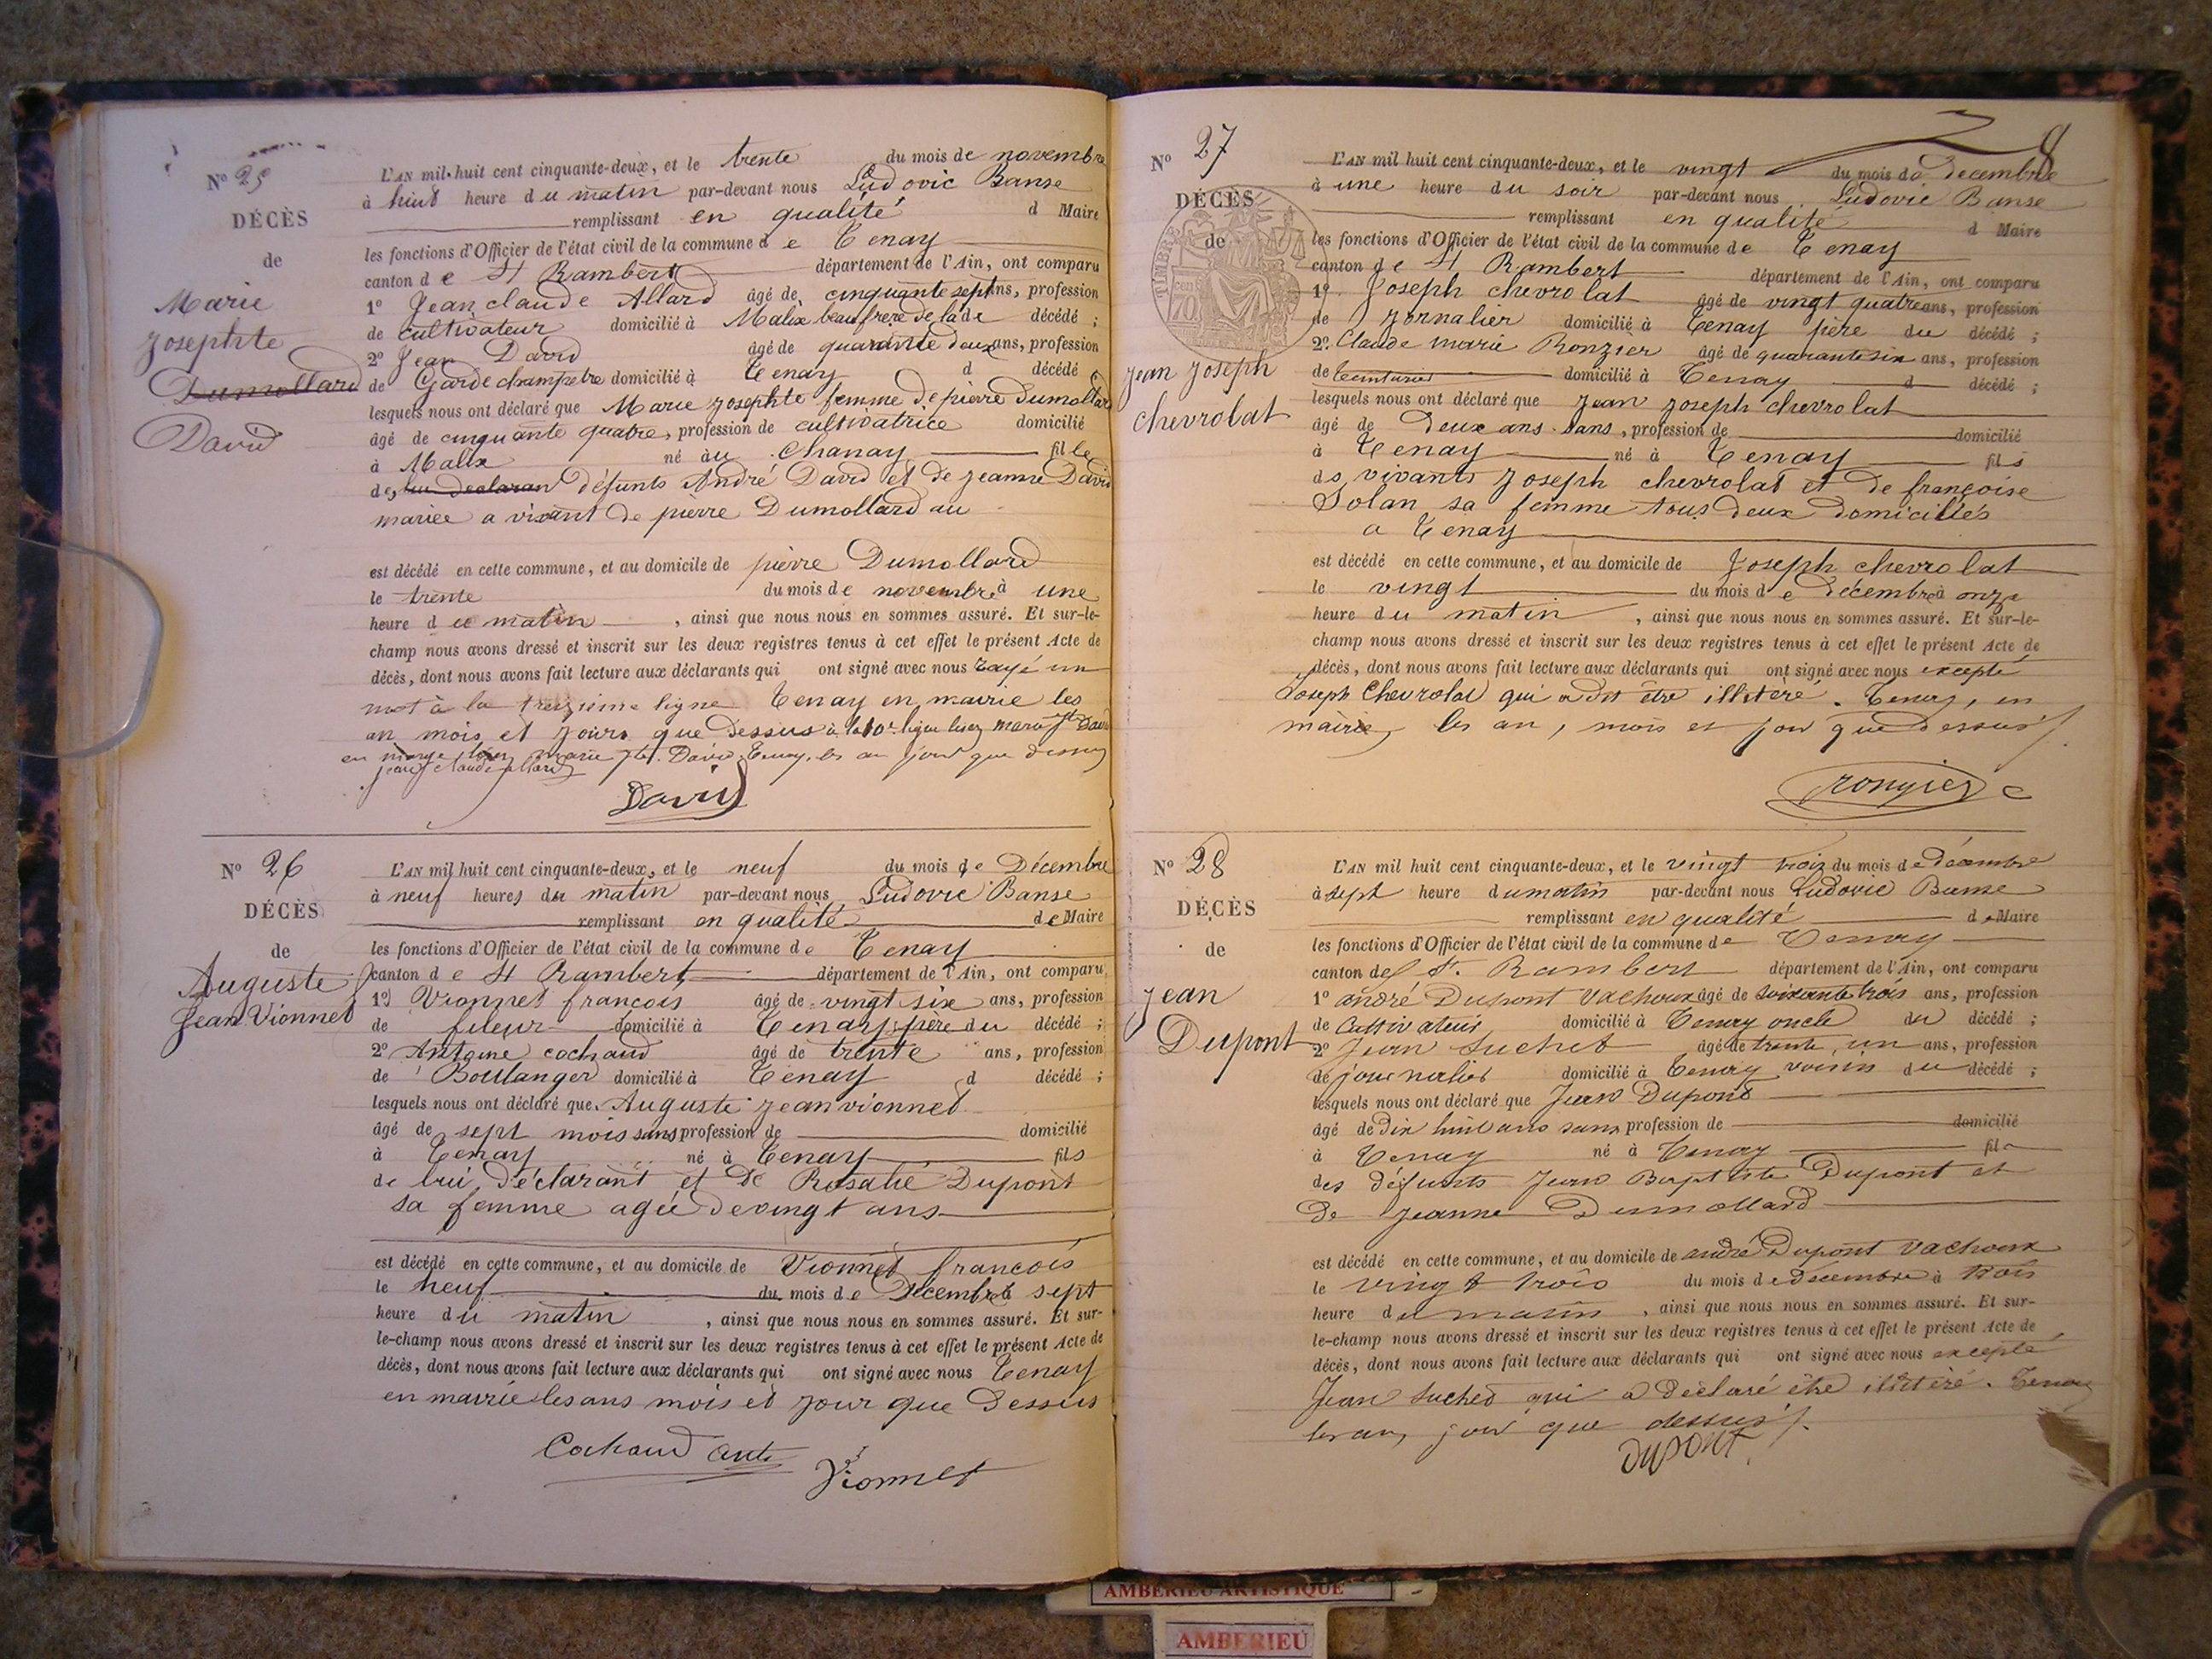 N° 25
DÉCÈS
de
Marie
Josephte
Dumollard
David
L'AN mil huit cent cinquante-deux, et le trente du mois de novembre
à huit heure du matin par-devant nous Ludovic Banse
remplissant en qualité d Maire
les fonctions d'Officier de l'état civil de la commune de Tenay
canton de St Rambert département de l'Ain, ont comparu
1° Jean claude Allard âgé de cinquante sept ans, profession
de cultivateur domicilié à Malix beaufrere de la de décédé ;
2° Jean David âgé de quarante deux ans, profession
de Garde champetre domicilié à Tenay d décédé ;
lesquels nous ont déclaré que Marie Josephte femme de pierre Dumollard
âgé de cinquante quatre, profession de cultivatrice domicilié
à Malix né au Chanay fille
des défunts André David et de jeanne David
mariée a vivant de pierre Dumollard au
est décédé en cette commune, et au domicile de pierre Dumollard
le trente du mois de novembre à une
heure du matin, ainsi que nous nous en sommes assuré. Et sur-le-
champ nous avons dressé et inscrit sur les deux registres tenus à cet effet le présent Acte de
décès, dont nous avons fait lecture aux déclarants qui ont signé avec nous rayé un
mot à la treizieme ligne Tenay en mairie les
an mois et jours que dessus à la 10e ligne lisez marie jte David
en marge lisez marie jte. David. Tenay, les an jour que dessus
jean claude allard
David
N° 26
DÉCÈS
de
Auguste
Jean Vionnet
L'AN mil huit cent cinquante-deux, et le neuf du mois de Décembre
à neuf heures du matin par-devant nous Ludovic Banse
remplissant en qualité de Maire
les fonctions d'Officier de l'état civil de la commune de Tenay
canton de St Rambert département de l'Ain, ont comparu
1° Vionnet francois âgé de vingt six ans, profession
de fileur domicilié à Tenay père du décédé ;
2° Antoine cochaud âgé de trente ans, profession
de Boulanger domicilié à Tenay d décédé ;
lesquels nous ont déclaré que Auguste jean vionnet
âgé de sept mois sans profession de domicilié
à Tenay né à Tenay fils
de lui déclarant et de Rosalie Dupont
sa femme agée de vingt ans
est décédé en cette commune, et au domicile de Vionnet francois
le neuf du mois de Décembre à sept
heure du matin, ainsi que nous nous en sommes assuré. Et sur-
le-champ nous avons dressé et inscrit sur les deux registres tenus à cet effet le présent Acte de
décès, dont nous avons fait lecture aux déclarants qui ont signé avec nous Tenay
en mairie les ans mois et jour que Dessus
Cochaud ant
Vionnet
N° 27
8
DÉCÈS
de
TIMBRE
70 cent
Jean Joseph
chevrolat
L'AN mil huit cent cinquante-deux, et le vingt du mois de decembre
à une heure du soir par-devant nous Ludovic Banse
remplissant en qualité d Maire
les fonctions d'Officier de l'état civil de la commune de Tenay
canton de St Rambert département de l'Ain, ont comparu
1° Joseph chevrolat âgé de vingt quatre ans, profession
de Jornalier domicilié à Tenay père du décédé ;
2° Claude marie Ronzier âgé de quarante six ans, profession
de teinturier domicilié à Tenay d décédé ;
lesquels nous ont déclaré que Jean Joseph chevrolat
âgé de deux ans sans, profession de domicilié
à Tenay né à Tenay fils
ds vivants Joseph chevrolat et de françoise
Solan sa femme tous deux domiciliés
a Tenay
est décédé en cette commune, et au domicile de Joseph chevrolat
le vingt du mois de décembre à onze
heure du matin, ainsi que nous nous en sommes assuré. Et sur-le-
champ nous avons dressé et inscrit sur les deux registres tenus à cet effet le présent Acte de
décès, dont nous avons fait lecture aux déclarants qui ont signé avec nous excepté
Joseph Chevrolat qui a dit être illitéré. Tenay, en
mairie, les an, mois et jour que dessus
rongier
N° 28
DÉCÈS
de
Jean
Dupont
L'AN mil huit cent cinquante-deux, et le vingt trois du mois de décembre
à sept heure du matin par-devant nous Ludovic Banse
remplissant en qualité de Maire
les fonctions d'Officier de l'état civil de la commune de Tenay
canton de St. Rambert département de l'Ain, ont comparu
1° andré Dupont Vachoux âgé de soixante trois ans, profession
de Cultivateur domicilié à Tenay oncle du décédé ;
2° Jean Suchet âgé de trente un ans, profession
de journalier domicilié à Tenay voisin du décédé ;
lesquels nous ont déclaré que Jean Dupont
âgé de Dix huit ans sans profession de domicilié
à Tenay né à Tenay fils
des défunts Jean Baptiste Dupont et
De Jeanne Dumollard
est décédé en cette commune, et au domicile de andré Dupont Vachoux
le vingt trois du mois de décembre à trois
heure du matin, ainsi que nous nous en sommes assuré. Et sur-
le-champ nous avons dressé et inscrit sur les deux registres tenus à cet effet le présent Acte de
décès, dont nous avons fait lecture aux déclarants qui ont signé avec nous excepté
Jean Suched qui a déclaré être illitéré. Tenay
les an, jour que dessus
DUPONT
AMBERIEU ARTISTIQUE
AMBERIEU